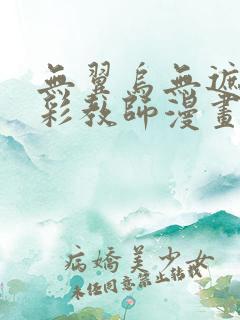 無翼烏無遮
彩教師漫畫
病嬌美少女
未经同意禁止转载